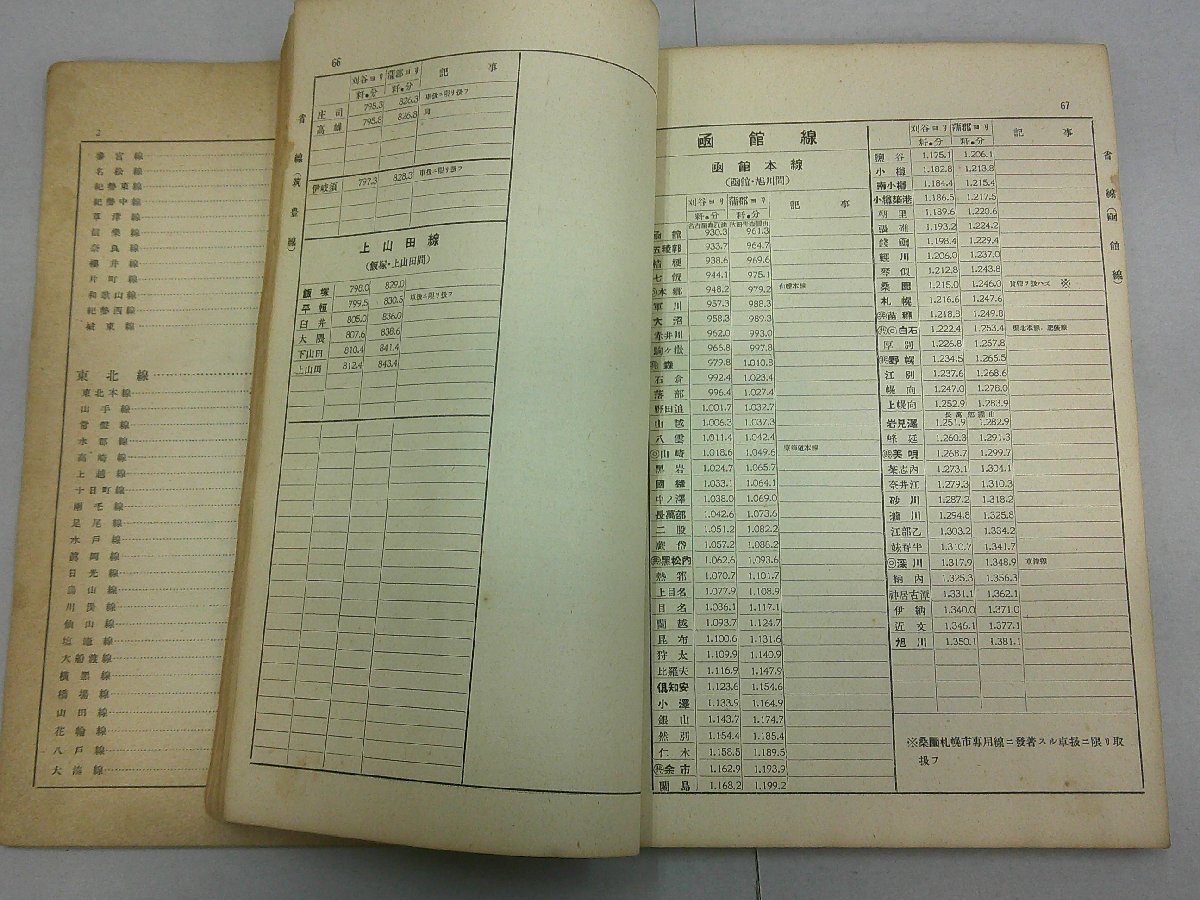 2
參宮線
名松線
紀勢東線
紀勢中線
草津線
信樂線
奈良線
櫻井線
片町線
和歌山線
紀勢西線
城東線
東北線
東北本線
山手線
常磐線
水郡線
高崎線
上越線
十日町線
兩毛線
足尾線
水戸線
眞岡線
日光線
烏山線
川俣線
仙山線
塩釜線
大船渡線
橫黑線
橋場線
山田線
花輪線
八戸線
大湊線
66
省線(筑豊線)
刈谷ヨリ 蒲郡ヨリ 記事
粁.分 粁.分
庄司 795.3 826.3 車扱ニ限リ扱フ
高雄 795.8 826.8 同
伊岐須 797.3 828.3 車扱ニ限リ扱フ
上山田線
(飯塚・上山田間)
飯塚 798.0 829.0
平恒 799.5 830.5 車扱ニ限リ扱フ
臼井 805.0 836.0
大隈 807.6 838.6
下山田 810.4 841.4
上山田 812.4 843.4
67
省線(函館線)
函館線
函館本線
(函館・旭川間)
刈谷ヨリ 蒲郡ヨリ 記事
粁.分 粁.分
函館 930.3 961.3
五稜郭 933.7 964.7
桔梗 938.6 969.6
七飯 944.1 975.1
本郷 948.2 979.2
軍川 957.3 988.3
大沼 958.3 989.3
赤井川 962.0 993.0
駒ヶ嶽 965.8 997.8
森 979.8 1.010.8
石倉 992.4 1.023.4
落部 996.4 1.027.4
野田追 1.001.7 1.032.7
山越 1.006.3 1.037.3
八雲 1.011.4 1.042.4
山崎 1.018.6 1.049.6
黑岩 1.024.7 1.055.7
國縫 1.033.1 1.064.1
中ノ澤 1.038.0 1.069.0
長萬部 1.042.6 1.073.6
二股 1.051.2 1.082.2
蕨岱 1.057.2 1.088.2
黑松內 1.062.6 1.093.6
熱郛 1.070.7 1.101.7
上目名 1.077.9 1.108.9
目名 1.086.1 1.117.1
蘭越 1.093.7 1.124.7
昆布 1.100.6 1.131.6
狩太 1.109.9 1.140.9
比羅夫 1.116.9 1.147.9
俱知安 1.123.6 1.154.6
小澤 1.133.9 1.164.9
銀山 1.143.7 1.174.7
然別 1.154.4 1.185.4
仁木 1.158.5 1.189.5
余市 1.162.9 1.193.9
蘭島 1.168.2 1.199.2
刈谷ヨリ 蒲郡ヨリ 記事
粁.分 粁.分
鹽谷 1.175.1 1.206.1
小樽 1.182.8 1.213.8
南小樽 1.184.4 1.215.4
小樽築港 1.186.5 1.217.5
朝里 1.189.6 1.220.6
張碓 1.193.2 1.224.2
錢函 1.198.4 1.229.4
輕川 1.206.0 1.237.0
琴似 1.212.8 1.243.8
桑園 1.215.0 1.246.0 ※
札幌 1.216.6 1.247.6
苗穗 1.218.8 1.249.8
白石 1.222.4 1.253.4
厚別 1.226.8 1.257.8
野幌 1.234.5 1.265.5
江別 1.237.6 1.268.6
幌向 1.247.0 1.278.0
上幌向 1.252.9 1.283.9
岩見澤 1.251.9 1.282.9
峰延 1.260.3 1.291.3
美唄 1.268.7 1.299.7
茶志內 1.273.1 1.304.1
奈井江 1.279.3 1.310.3
砂川 1.287.2 1.318.2
瀧川 1.294.8 1.325.8
江部乙 1.303.2 1.334.2
妹背牛 1.310.7 1.341.7
深川 1.317.9 1.348.9
納內 1.325.3 1.356.3
神居古潭 1.331.1 1.362.1
伊納 1.340.0 1.371.0
近文 1.346.1 1.377.1
旭川 1.350.1 1.381.1
※桑園札幌市專用線ニ發著スル車扱ニ限リ取
扱フ